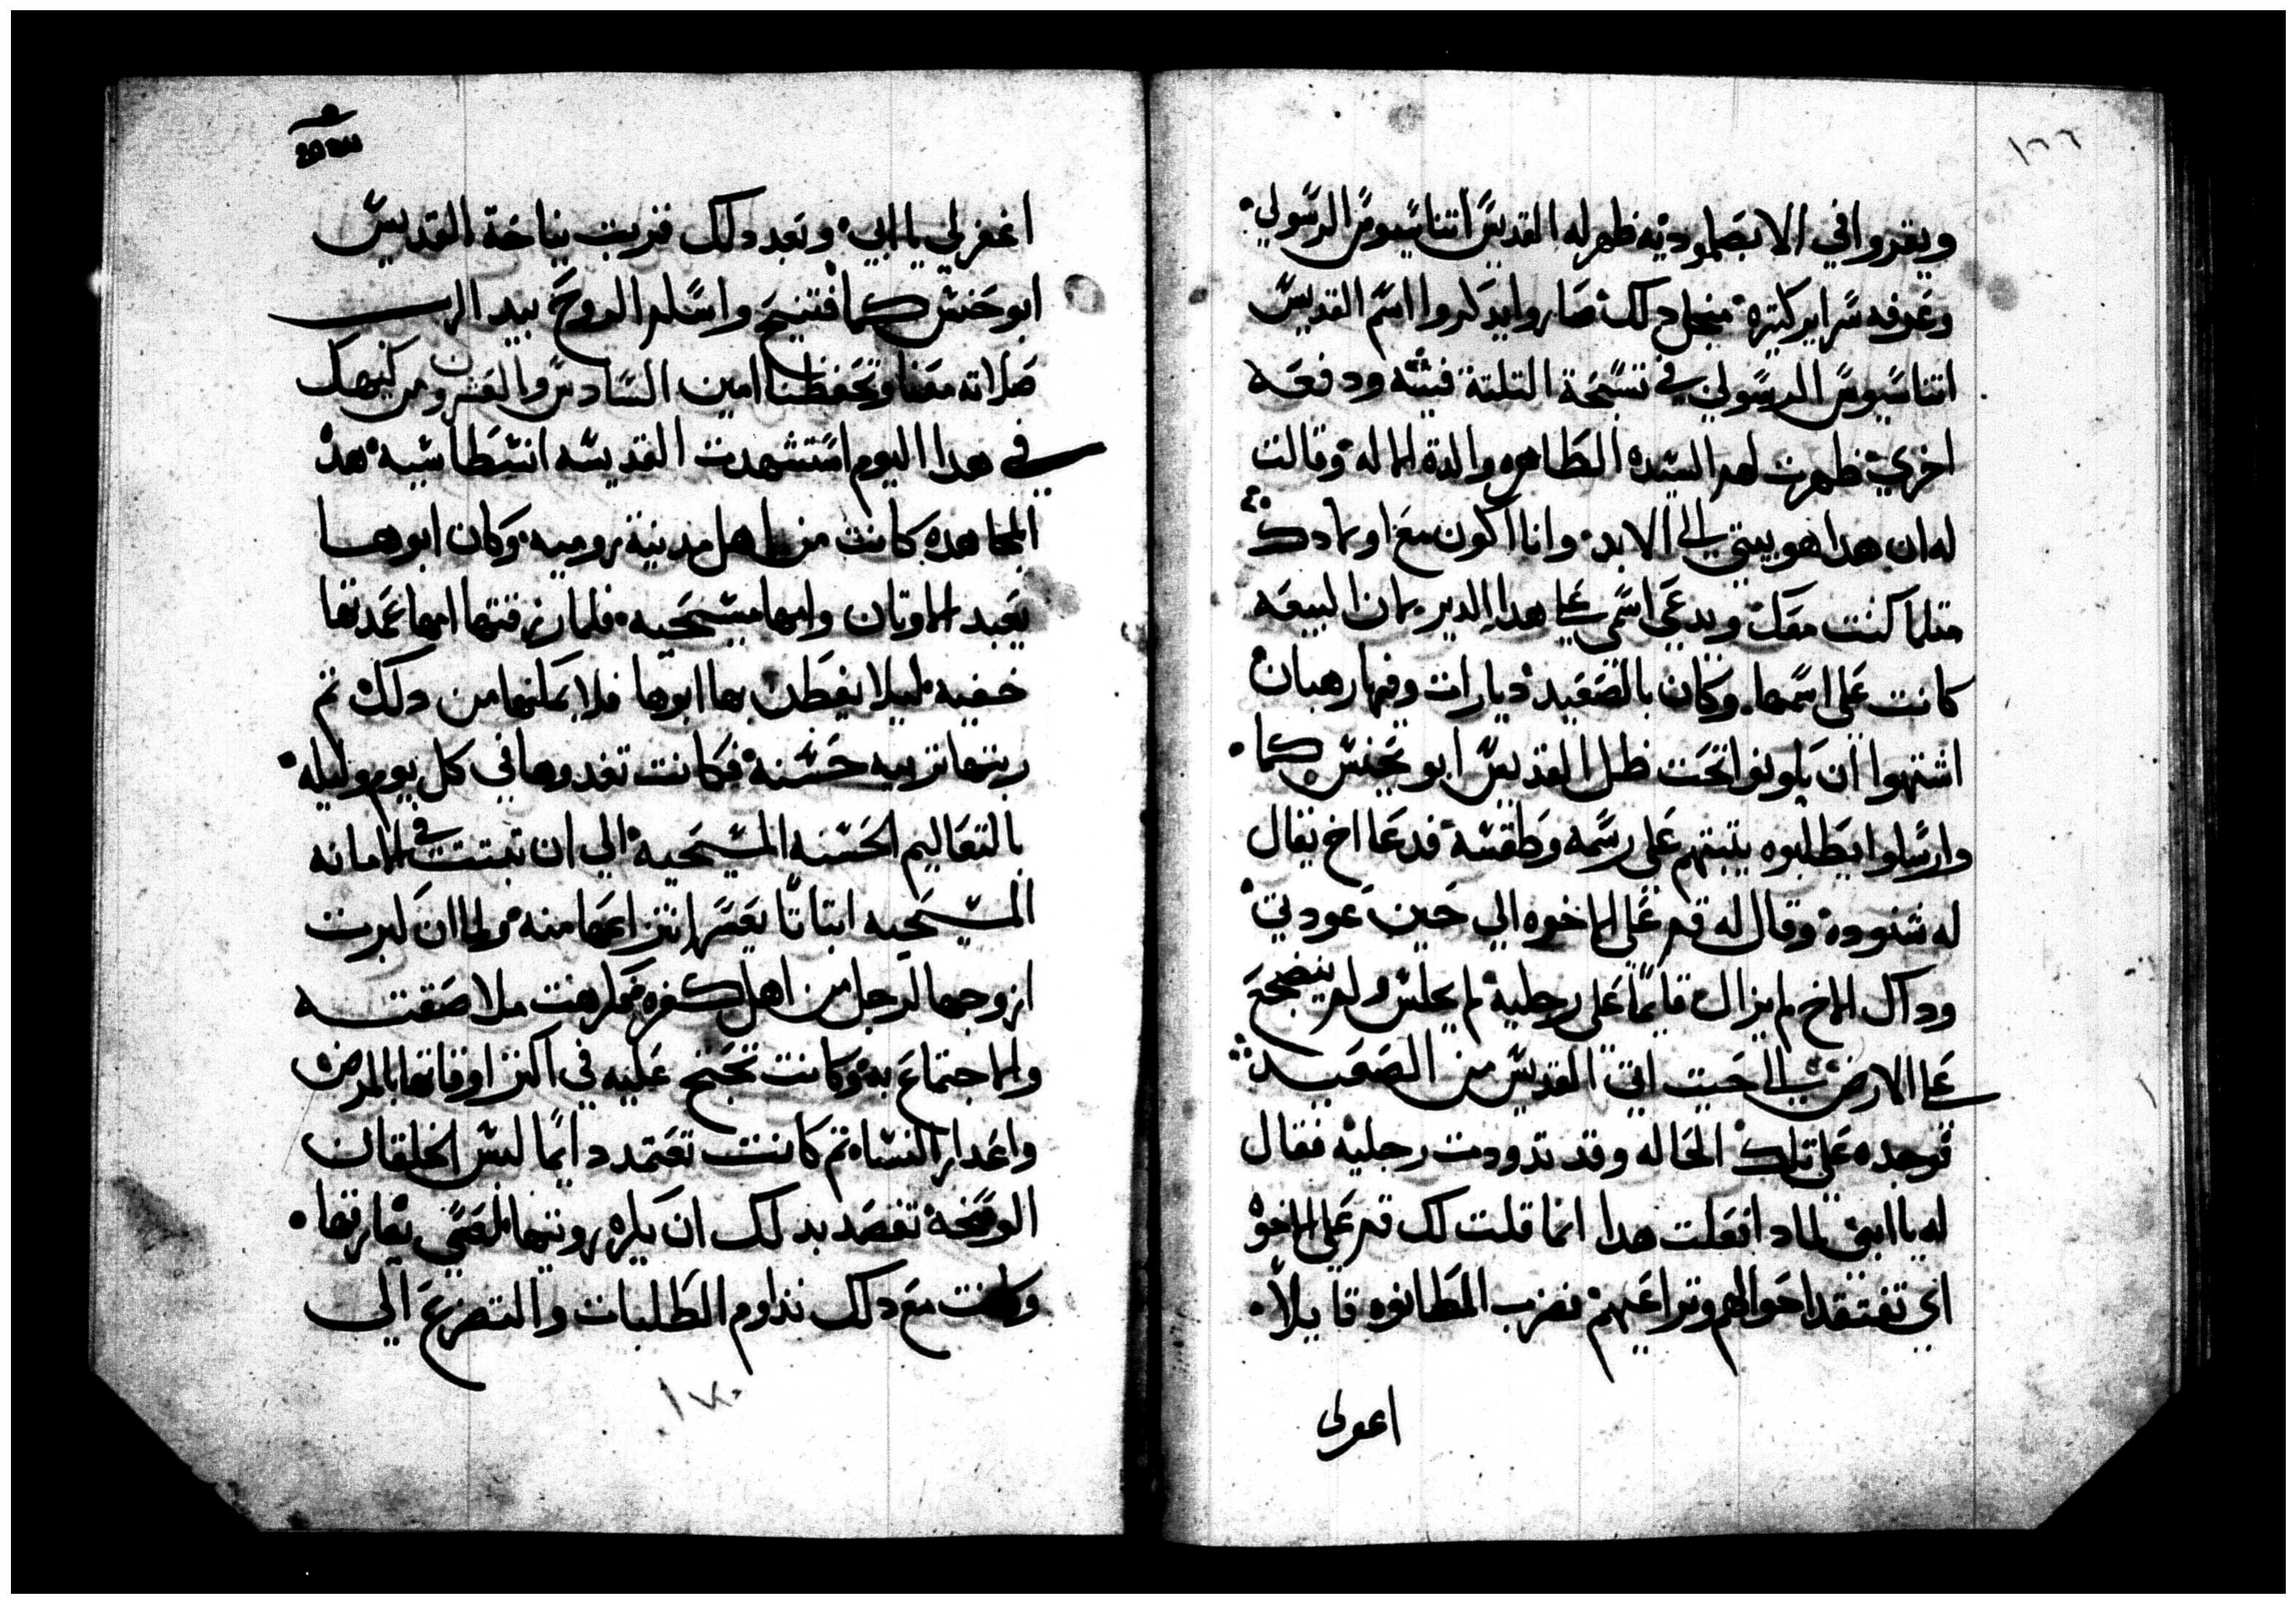 ١٦٦
ويقروا في الابصلموديه ظهر له القديس اتناسيوس الرسولي
وعرفه سراير كتيره فمنجل دلك صاروا يدكروا اسم القديس
اتناسيوس الرسولي في تسبحة التلتة فتيه ودفعه
اخري ظهرت لهم السيده الطاهره والدة الاله وقالت
له ان هدا هو بيتي الي الابد وانا اكون مع اولادك
متلما كنت معك ويدعي اسمي علي هدا الدير لان البيعه
كانت علي اسمها وكان بالصعيد ديارات وفيها رهبان
اشتهوا ان يكونوا تحت ظل القديس ابو يحنس كاما
وارسلوا يطلبوه يتبتهم علي رسمه وطقسه فدعا اخ يقال
له شنوده وقال له قم علي الاخوه الي حين عودتي
وداك الاخ لم يزال قايما علي رجليه لم يجلس ولم ينضجع
علي الارض الي حيت اتي القديس من الصعيد
فوجده علي تلك الحاله وقد تدودت رجليه فقال
له يا ابني لمادا فعلت هدا انما قلت لك قم علي الاخوه
اي تفتقد احوالهم وتراعيهم فضرب المطانوه قايلا
اغفرلي
اغفر لي يا ابي وبعد دلك قربت نياحة القديس
ابو حنس كاما فتنيح واسلم الروح بيد الرب
صلاته معنا وتحفظنا امين السادس والعشرون من كيهك
في هدا اليوم استشهدت القديسه انسطاسيه هده
المجاهده كانت من اهل مدينة روميه وكان ابوها
يعبد الاوتان وامها مسيحيه فلما رزقتها امها عمدتها
خفيه ليلا يفطن بها ابوها فلا يمكنها من دلك تم
ربتها تربيه حسنه فكانت تغدوها في كل يوم وليله
بالتعاليم الحسنه المسيحيه الي ان تبتت في الامانه
المسيحيه اتباتا يعسر انتزاعها منه ولما ان كبرت
ازوجها لرجل من اهل كفره فكرهت ملاصقته
والاجتماع به وكانت تحتج عليه في اكتر اوقاتها بالمرض
واعدار النسا تم كانت تعتمد دايما لبس الخلقان
الوسخه تقصد بدلك ان يكره رويتها لعسي يفارقها
وكانت مع دلك تداوم الطلبات والتضرع الي
١٧٠